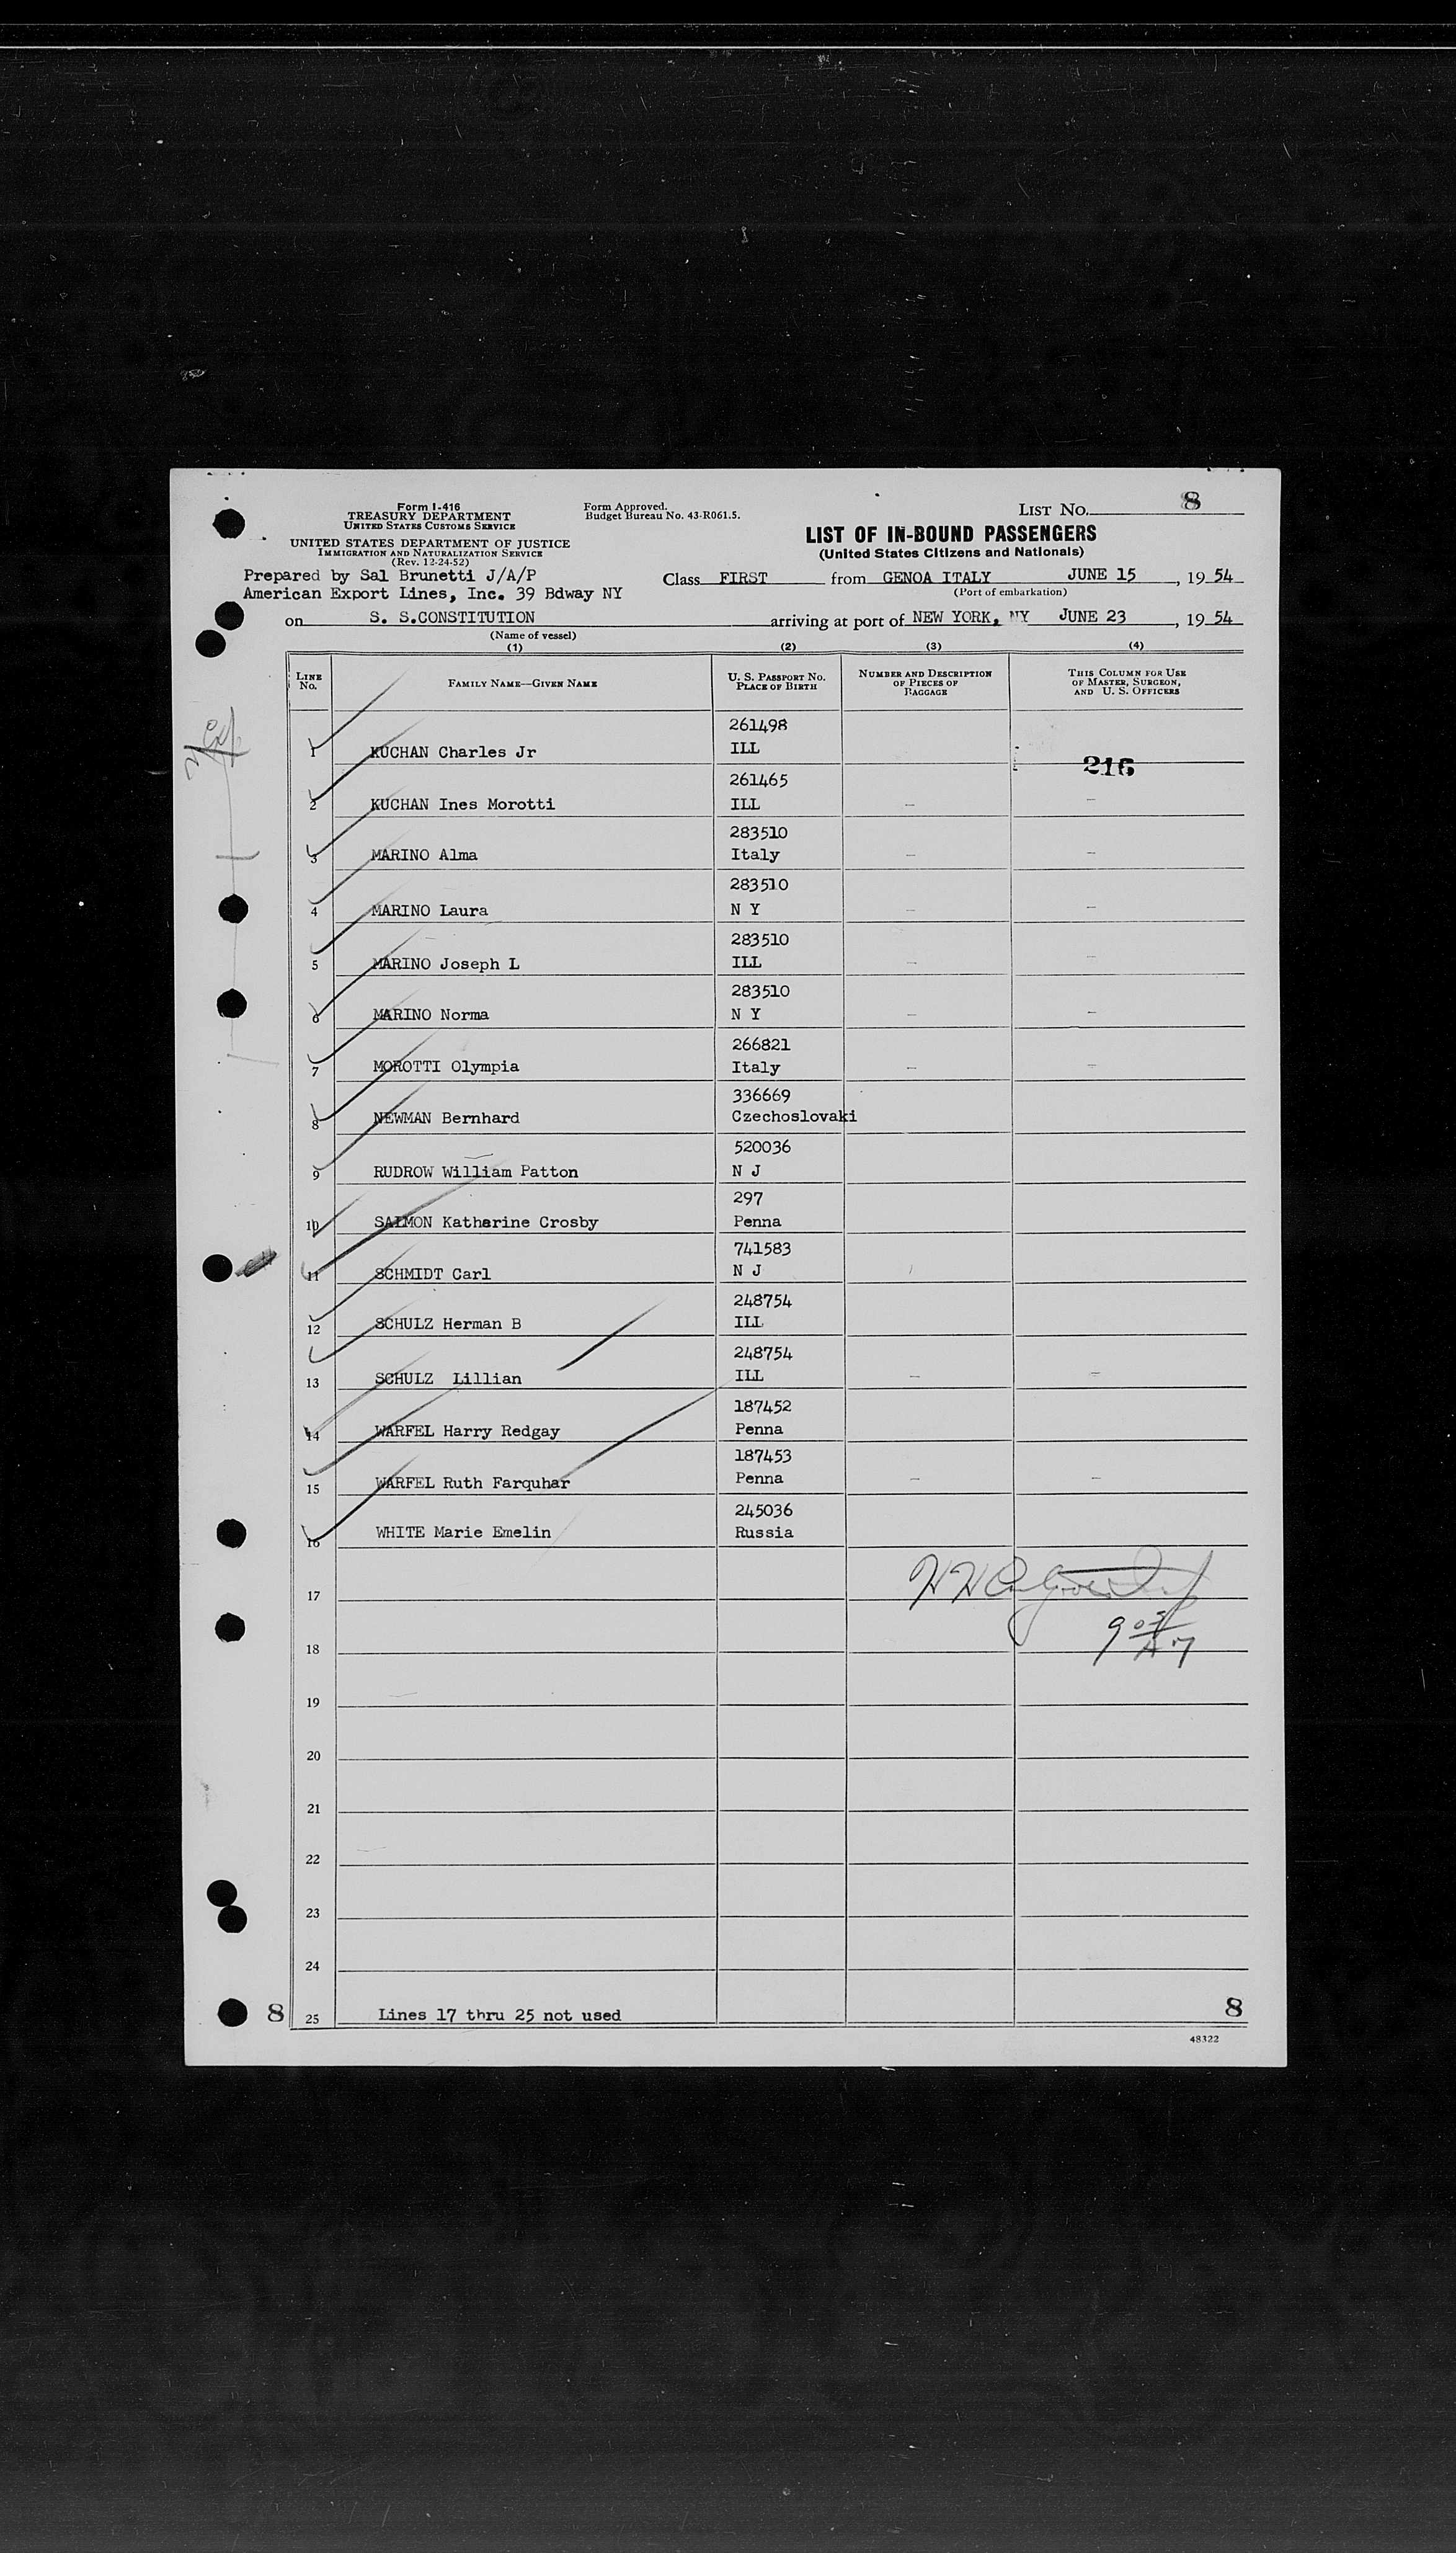 Form I-416
TREASURY DEPARTMENT
UNITED STATES CUSTOMS SERVICE
UNITED STATES DEPARTMENT OF JUSTICE
IMMIGRATION AND NATURALIZATION SERVICE
(Rev. 12-24-52)
Form Approved.
Budget Bureau No. 43-R061.5.
LIST NO. 8
LIST OF IN-BOUND PASSENGERS
(United States Citizens and Nationals)
Prepared by Sal Brunetti J/A/P
American Export Lines, Inc. 39 Bdway NY
Class FIRST from GENOA ITALY JUNE 15, 1954
(Port of embarkation)
on S. S.CONSTITUTION arriving at port of NEW YORK, NY JUNE 23, 1954
(Name of vessel)
(1) (2) (3) (4)
LINE NO. FAMILY NAME—GIVEN NAME U. S. PASSPORT NO. PLACE OF BIRTH NUMBER AND DESCRIPTION OF PIECES OF BAGGAGE THIS COLUMN FOR USE OF MASTER, SURGEON, AND U. S. OFFICERS
261498
1 KUCHAN Charles Jr ILL
216
261465
2 KUCHAN Ines Morotti ILL — —
283510
3 MARINO Alma Italy — —
283510
4 MARINO Laura N Y — —
283510
5 MARINO Joseph L ILL — —
283510
6 MARINO Norma N Y — —
266821
7 MOROTTI Olympia Italy — —
336669
8 NEWMAN Bernhard Czechoslovaki
520036
9 RUDROW William Patton N J
297
10 SALMON Katharine Crosby Penna
741583
11 SCHMIDT Carl N J
248754
12 SCHULZ Herman B ILL
248754
13 SCHULZ Lillian ILL — —
187452
14 WARFEL Harry Redgay Penna
187453
15 WARFEL Ruth Farquhar Penna — —
245036
16 WHITE Marie Emelin Russia
17
18
19
20
21
22
23
24
8 25 Lines 17 thru 25 not used 8
48322